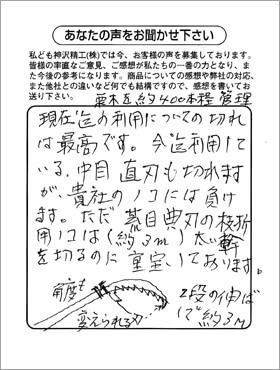 あなたの声をお聞かせ下さい
私ども神沢精工(株)では今、お客様の声を募集しております。
皆様の率直なご意見、ご感想が私たちの一番の力となり、ま
た今後の参考になります。商品についての感想や弊社の対応、
また他社との違いなど何でも結構ですので、感想を書いてお
送り下さい。
並木を約400本程管理
現在迄の利用についての切れ
は最高です。今迄利用して
いる、中目直刃も切れます
が、貴社のノコには負け
ます。ただ荒目曲刃の枝折
用ノコは(約3m)太い幹
を切るのに重宝しております。
角度も
変えられる刃
2段の伸ば
しで約3m